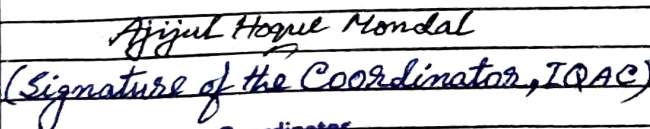 Ajijul Hoque Mondal
(Signature of the Coordinator, IQAC)